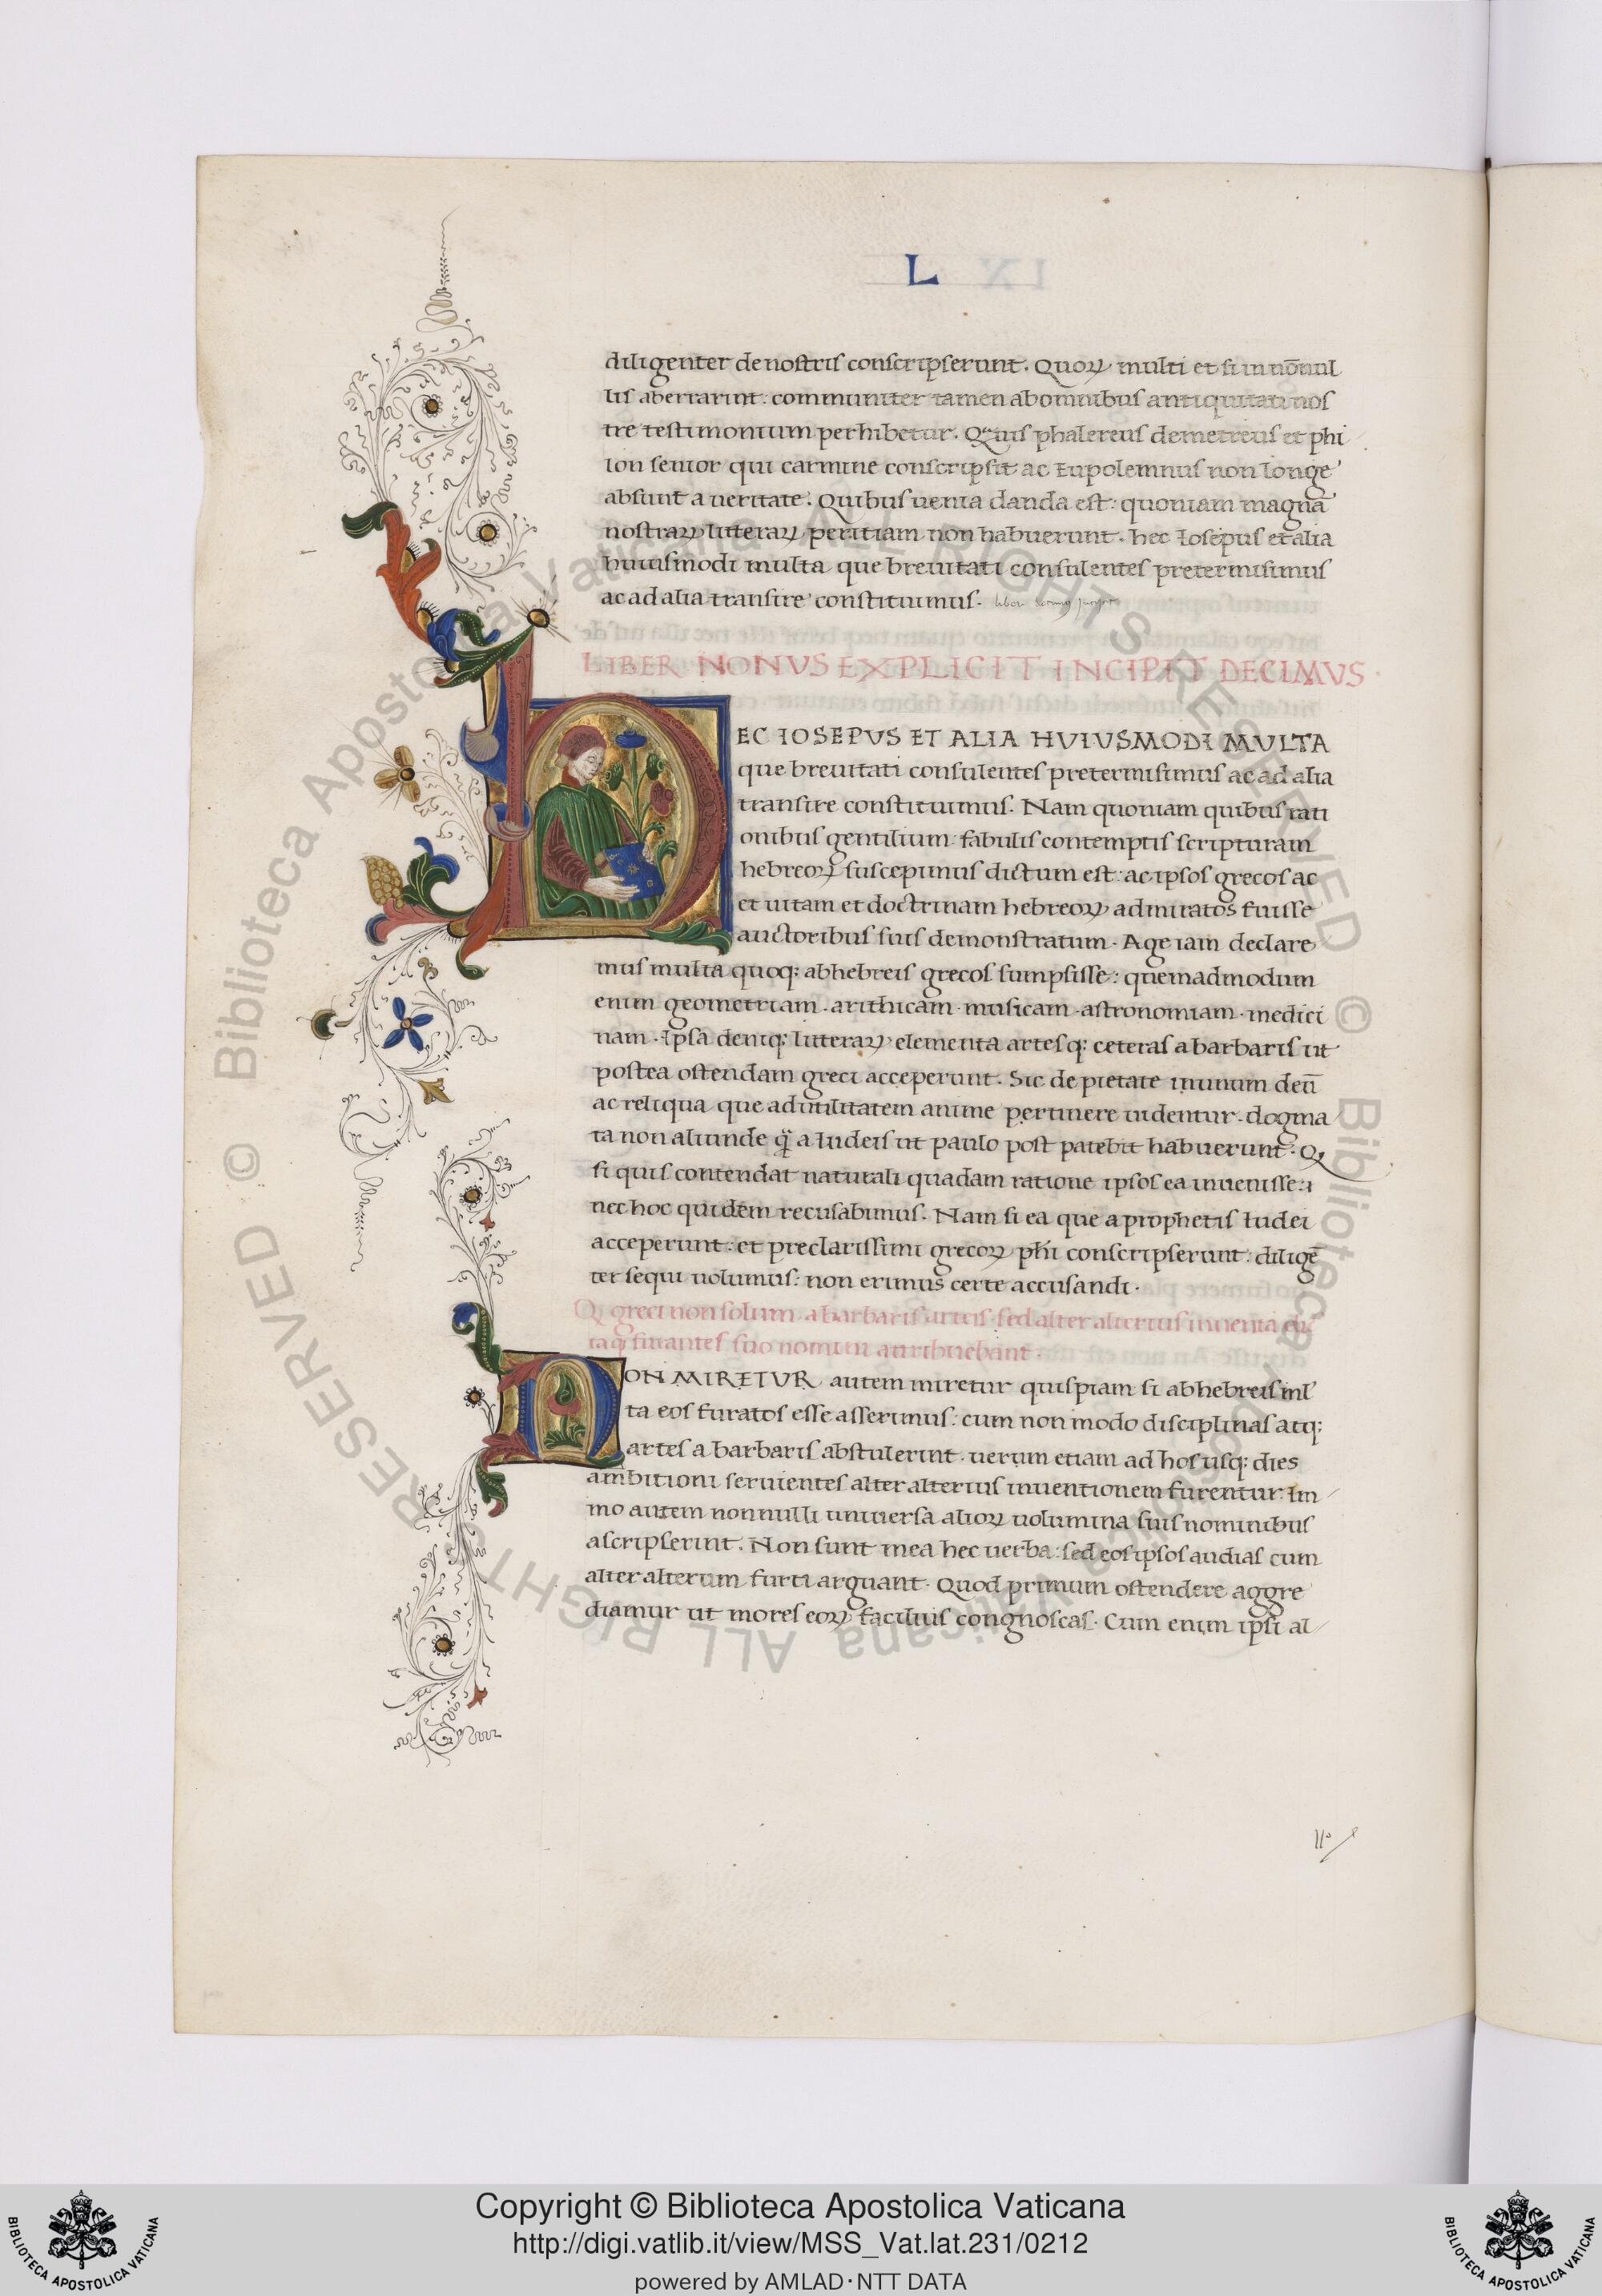 L
diligenter de nostris conscripserunt. Quoꝝ multi et si in nōnul
lis aberrarint: communiter tamen ab omnibus antiquitati nos
tre testimonium perhibetur. Quis phalereus demetreus et phi
lon senior qui carmine conscripsit ac Eupolemnus non longe
absunt a veritate. Quibus venia danda est: quoniam magnā
nostraꝝ litteraꝝ peritiam non habuerunt. hec Iosepus et alia
huiusmodi multa que brevitati consulentes pretermisimus
ac ad alia transire constituimus.
LIBER NONUS EXPLICIT INCIPIT DECIMUS.
HEC IOSEPUS ET ALIA HUIUSMODI MULTA
que brevitati consulentes pretermisimus ac ad alia
transire constituimus. Nam quoniam quibus rati
onibus gentilium fabulis contemptis scripturam
hebreoꝝ suscepimus dictum est: ac ipsos grecos ac
et vitam et doctrinam hebreoꝝ admiratos fuisse
auctoribus suis demonstratum. Age iam declare
mus multa quoq; ab hebreis grecos sumpsisse: quemadmodum
enim geometriam. arithicam. musicam. astronomiam. medici
nam. Ipsa deniq; litteraꝝ elementa artesq; ceteras a barbaris ut
postea ostendam greci acceperunt. Sic de pietate in unum deū
ac reliqua que ad utilitatem anime pertinere videntur. dogma
ta non aliunde q̄ a Iudeis ut paulo post patebit habuerunt. Q
si quis contendat naturali quadam ratione ipsos ea invenisse:
nec hoc quidem recusabimus. Nam si ea que a prophetis Iudei
acceperunt: et preclarissimi grecoꝝ phi conscripserunt: diligē
ter sequi volumus: non erimus certe accusandi.
Q greci non solum a barbaris artes sed alter alterius inventa
furantes suo nomini attribuebant.
NON MIRETUR autem miretur quispiam si ab hebreis ml
ta eos furatos esse asserimus: cum non modo disciplinas atq;
artes a barbaris abstulerint. verum etiam ad hos usq; dies
ambitioni servientes alter alterius inventionem furentur. Im
mo autem nonnulli universa alioꝝ volumina suis nominibus
ascripserint. Non sunt mea hec verba: sed eos ipsos audias cum
alter alterum furti arguant. Quod primum ostendere aggre
diamur ut mores eoꝝ facilius congnoscas. Cum enim ipsi al
© Biblioteca Apostolica Vaticana ALL RIGHTS RESERVED
© Biblioteca Apostolica Vaticana ALL RIGHTS RESERVED
Copyright © Biblioteca Apostolica Vaticana
http://digi.vatlib.it/view/MSS_Vat.lat.231/0212
powered by AMLAD·NTT DATA
BIBLIOTECA APOSTOLICA VATICANA
BIBLIOTECA APOSTOLICA VATICANA